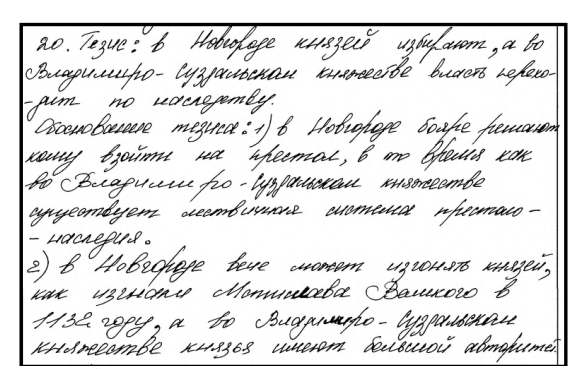 20. Тезис: в Новгороде князей избирают, а во
Владимиро-Суздальском княжестве власть перехо-
-дит по наследству.
Обоснование тезиса: 1) в Новгороде бояре решают
кому взойти на престол, в то время как
во Владимиро-Суздальском княжестве
существует лествичная система престоло-
-наследия.
2) в Новгороде вече может изгонять князей,
как изгнали Мстислава Великого в
1132 году, а во Владимиро-Суздальском
княжестве князья имеют большой авторитет.